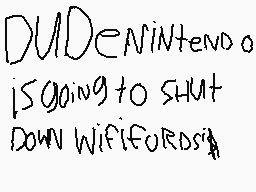 DUDe NiNteNDo
is going to SHUt
DOWN WiFi FOR DSi